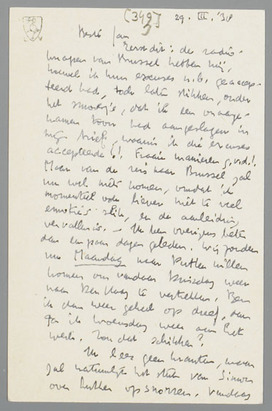 [349] 29. III. '38
Beste Jan
Eerst dit: de radio-
knapen van Brussel hebben mij,
hoewel ik hun excuses n.b. geaccep-
teerd had, toch laten stikken, onder
het smoesje, dat ik een
toon had aangeslagen in
mijn brief, waarin ik die excuses
accepteerde! Fraaie manieren, g.v.d.!
Maar van de reis naar Brussel zal
nu wel niets komen, omdat ik
momenteel ook liever niet te veel
emoties slik, en de aanleiding
vervallen is. — Ik ben overigens beter
dan een paar dagen geleden. Wij zouden
nu Maandag naar Ruthen willen
komen om vandaar Dinsdag weer
naar Den Haag te vertrekken. Ben
ik dan weer geheel op dreef, dan
ga ik Woensdag weer aan het
werk. Zou dat schikken?
Ik lees geen kranten, maar
zal natuurlijk het stuk van Simon
over Ruthen opsnorren, vandaag